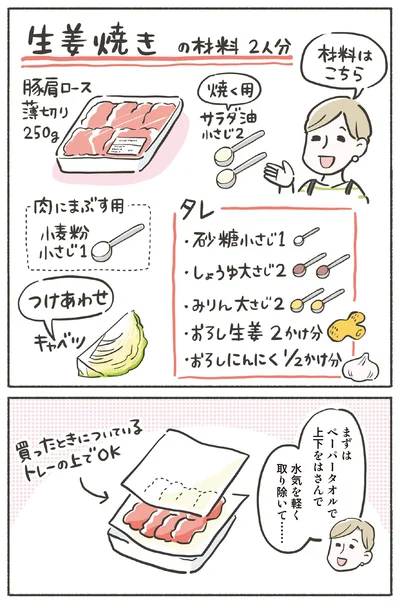 生姜焼き の材料 2人分
材料は
こちら
豚肩ロース
薄切り
250g
焼く用
サラダ油
小さじ2
肉にまぶす用
小麦粉
小さじ1
つけあわせ
キャベツ
タレ
・砂糖小さじ1
・しょうゆ大さじ2
・みりん大さじ2
・おろし生姜 2かけ分
・おろしにんにく 1/2かけ分
まずは
ペーパータオルで
上下をはさんで
水気を軽く
取り除いて……
買ったときについている
トレーの上でOK